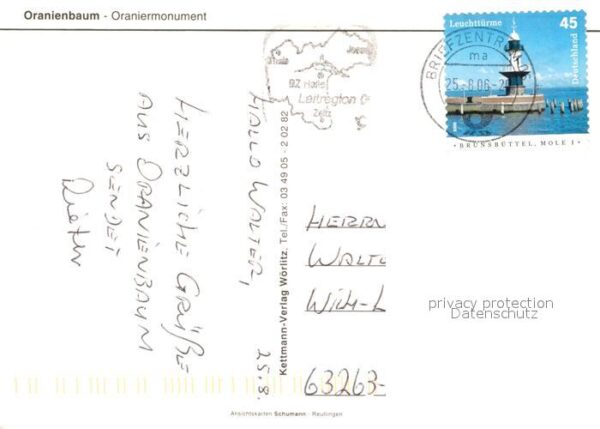 Oranienbaum - Oraniermonument
Leuchttürme 45
Deutschland
BRUNSBÜTTEL, MOLE 1
BRIEFZENTR
ma
25.-8.06-2
BZ Halle
Leitregion 0
Zeitz
HALLO WALTER,
25.8.
HERZLICHE GRÜßE
AUS ORANIENBAUM
SENDET
Dieter
Kettmann-Verlag Wörlitz, Tel./Fax: 03 49 05 - 2 02 82
HERRN
WALTE
WILH-L
63263-
privacy protection
Datenschutz
Ansichtskarten Schumann - Reutlingen